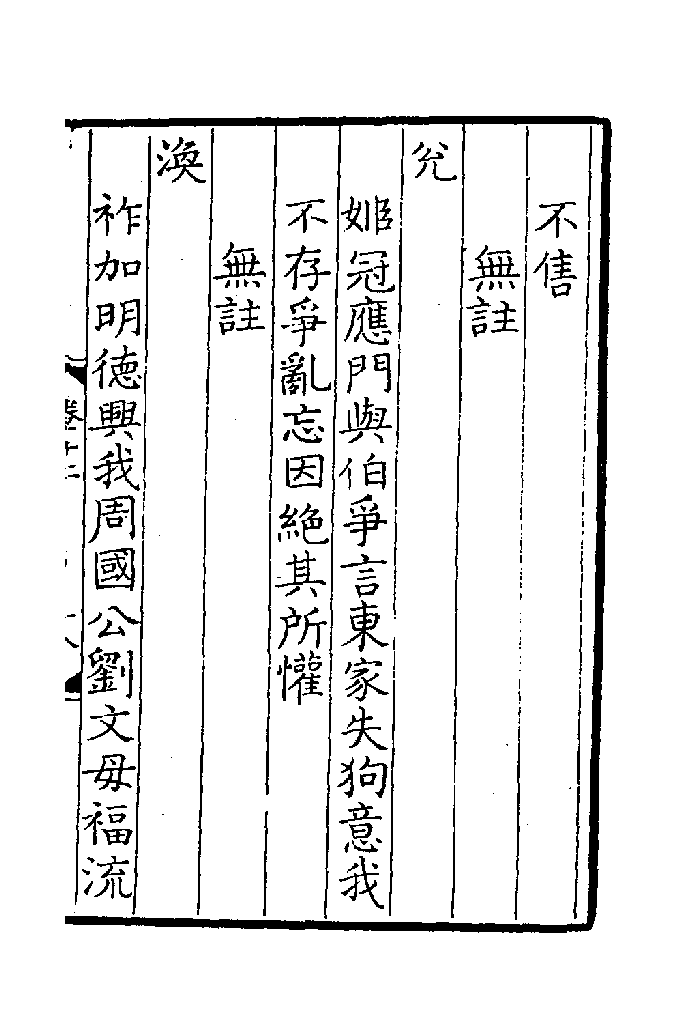 不售
無註
兊
姬冠應門與伯爭言東家失狗意我
不存爭亂忘因絶其所懽
無註
渙
祚加明德興我周國公劉文毋福流